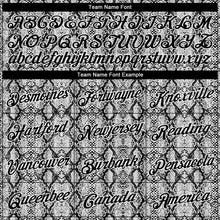 Team Name Font
A B C D E F G H I J K L M
N O P Q R S T U V W X Y Z
a b c d e f g h i j k l m n o p q r s t u v w x y z
Team Name Font Example
Desmoines Fortwayne Knoxville
Hartford NewJersey Reading
Vancouver Burbank Pensacola
Queenbee Canada America